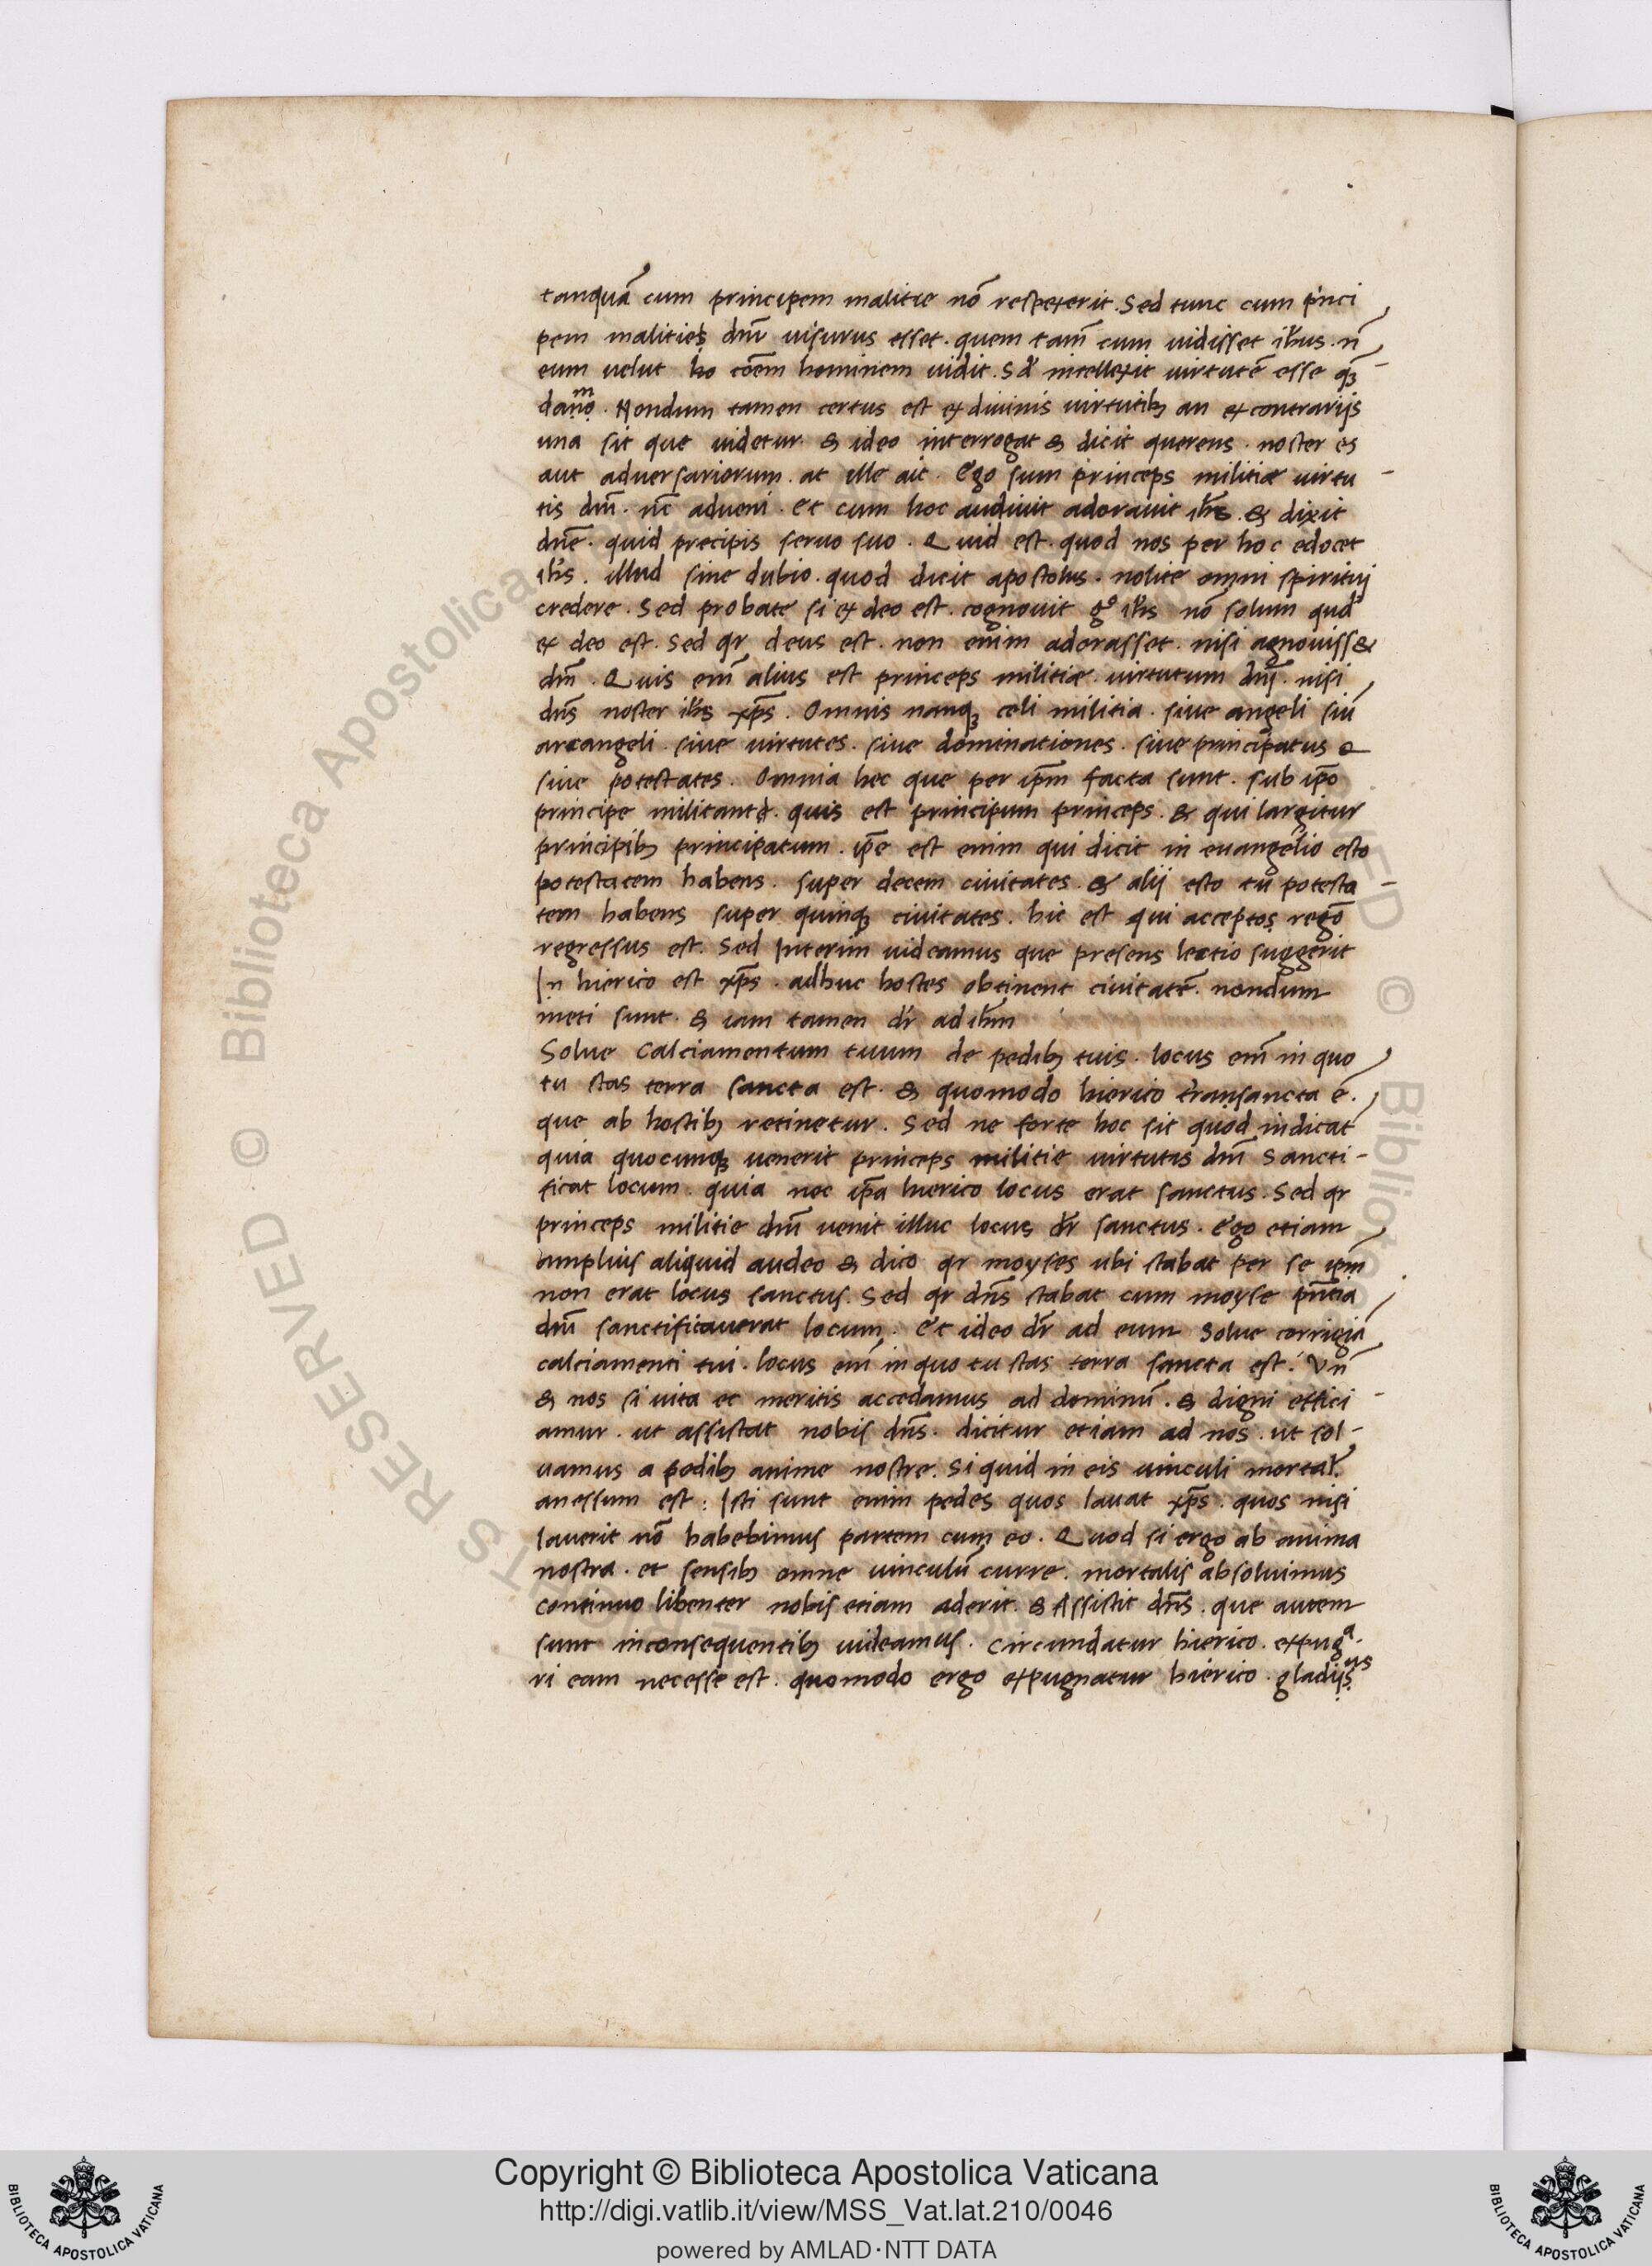 tanquā cum principem malitie nō respexerit. Sed tunc cum pͥnci
pem malities dnī uisurus esset. quem tam̄ cum uidisset ih̄us. n̄
eum uelut ho cōem hominem uidit. Sꝫ intellexit uirtutē esse qͣꝫ
dano. Nondum tamen certus est ex diuinis uirtutibꝫ an ex contrarijs
una sit que uidetur. & ideo interrogat & dicit querens. noster es
aut aduersariorum. at ille ait. Ego sum princeps militiæ uirtu-
tis dn̄i. nc̄ adueni. Et cum hoc audiuit adorauit ih̄s. & dixit
dn̄e. quid precipis seruo suo. Quid est. quod nos per hoc edocet
ih̄s. illud sine dubio. quod dicit apostolus. nolite omni spiritui
credere. Sed probate si ex deo est. cognouit gͦ ih̄s nō solum qud̓
ex deo est. Sed qr deus est. non enim adorasset. nisi agnouiss&
dn̄m. Quis em̄ alius est princeps militiæ. uirtutum dn̄i. nisi
dn̄s noster ih̄s xp̄s. Omnis nanqꝫ celi militia. siue angeli siū
arcangeli. siue uirtutes. siue dominationes. siue principatus
siue potestates. Omnia hec que per ip̄m facta sunt. sub ip̄o
principe militant. quis est principum princeps. & qui largitur
principibꝫ principatum. ip̄e est enim qui dicit in euangelio esto
potestatem habens. super decem ciuitates. & alij esto tu potesta-
tem habens super quinqꝫ ciuitates. hic est qui acceptos regō
regressus est. Sed Interim uideamus que presens lectio suggerit
In hierico est xp̄s. adhuc hostes obtinent ciuitatē. nondum
meti sunt. & iam tamen dr̄ ad ih̄m
Solue Calciamentum tuum de pedibꝫ tuis. locus em̄ in quo
tu stas terra sancta est. & quomodo hierico transancta ē.
que ab hostibꝫ retinetur. Sed ne forte hoc sit quod indicat
quia quocunqꝫ uenerit princeps militie uirtutis dn̄i Sancti-
ficat locum. quia nec ip̄a hierico locus erat sanctus. Sed qr
princeps militie dn̄i uenit illuc locus dr̄ sanctus. Ego etiam
amplius aliquid audeo & dico qr moyses ubi stabat per se ip̄m
non erat locus sanctus. Sed qr dn̄s stabat cum moyse pn̄tia
dn̄i sanctificauerat locum. Et ideo dr̄ ad eum Solue corrigiā
calciamenti tui. locus em̄ in quo tu stas terra sancta est. Vn̄
& nos si uita et meritis accedamus ad dominū. & digni effici-
amur. ut assistat nobis dn̄s. dicitur etiam ad nos. ut sol-
uamus a pedibꝫ anime nostre. Si quid in eis uinculi mortal̄.
anessum est: Isti sunt enim pedes quos lauat xp̄s. quos nisi
lauerit nō habebimus partem cum eo. Quod si ergo ab anima
nostra. et sensibꝫ omne uinculū curre. mortalis absoluimus
continuo libenter nobis etiam aderit. & Assistit dn̄s. que autem
sunt inconsequentibꝫ uideamus. Circundatur hierico. expugᵃ-
ri eam necesse est. quomodo ergo expugnatur hierico. gladijs
Copyright © Biblioteca Apostolica Vaticana
http://digi.vatlib.it/view/MSS_Vat.lat.210/0046
powered by AMLAD·NTT DATA
BIBLIOTECA APOSTOLICA VATICANA
BIBLIOTECA APOSTOLICA VATICANA